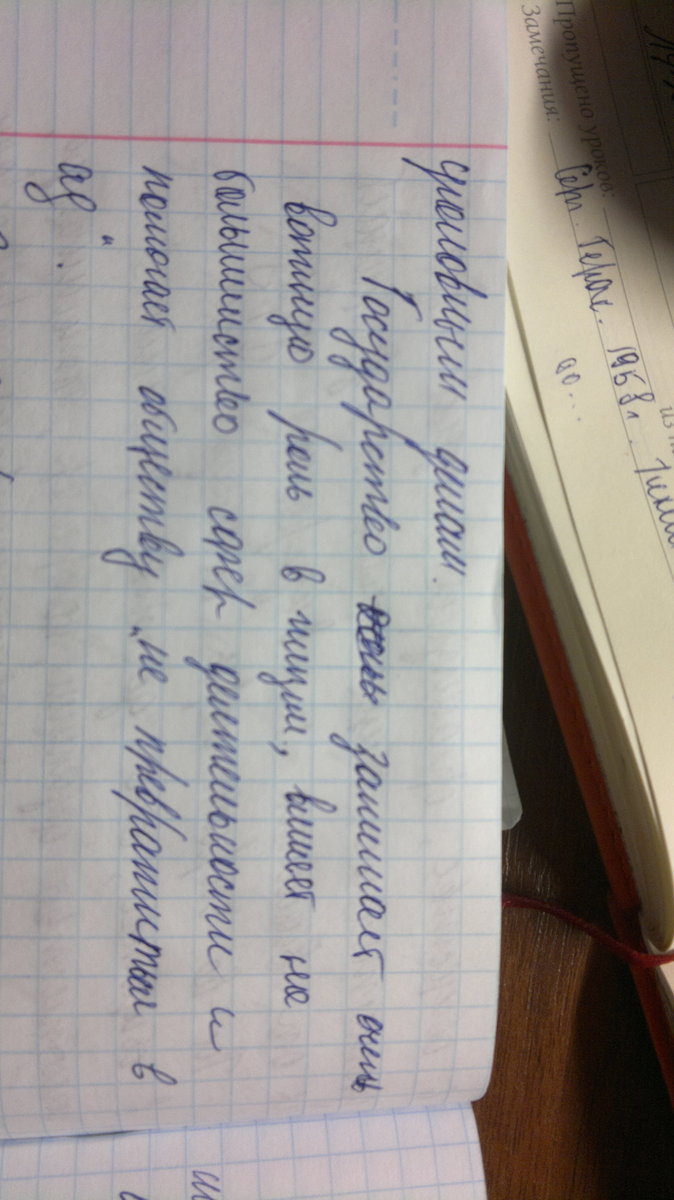 Пропущено уроков:
Замечания:
Серг. Герас. 1958г. Тихий
до...
уголовным делам.
Государство занимает очень
важную роль в жизни, влияет на
большинство сфер деятельности и
помогает обществу „не превратиться в
ад".